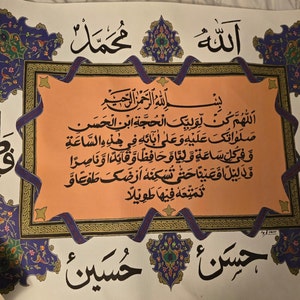 الله
محمد
بِسْمِ اللهِ الرَّحْمٰنِ الرَّحِيمِ
اَللّٰهُمَّ كُنْ لِوَلِيِّكَ الْحُجَّةِ ابْنِ الْحَسَنِ
صَلَوَاتُكَ عَلَيْهِ وَعَلٰى آبَائِهِ فِي هٰذِهِ السَّاعَةِ
وَفِي كُلِّ سَاعَةٍ وَلِيًّا وَحَافِظًا وَقَائِدًا وَنَاصِرًا
وَدَلِيلًا وَعَيْنًا حَتّٰى تُسْكِنَهُ أَرْضَكَ طَوْعًا وَ
تُمَتِّعَهُ فِيهَا طَوِيلًا
حسن
حسين